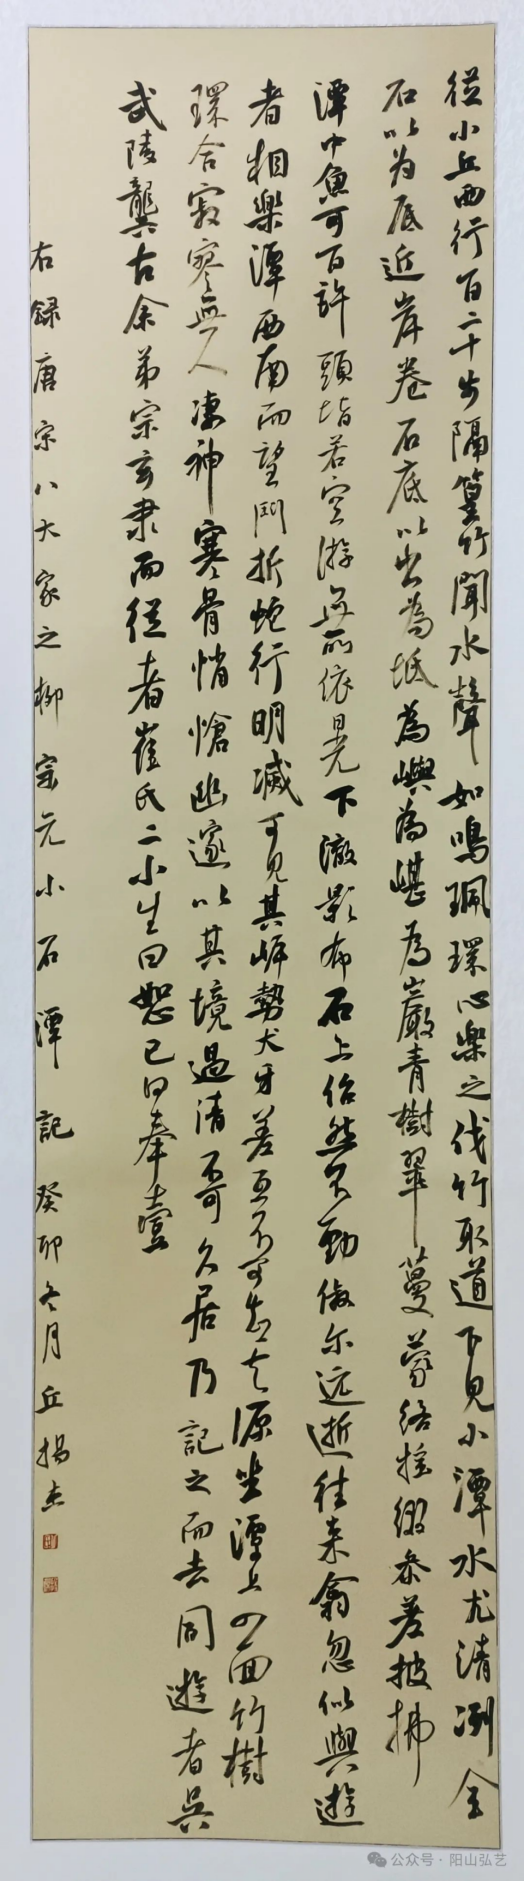 從小丘西行百二十步隔篁竹聞水聲如鳴珮環心樂之伐竹取道下見小潭水尤清冽全
石以为底近岸卷石底以出為坻為嶼為嵁為巖青樹翠蔓蒙络摇缀参差披拂
潭中魚可百許頭皆若空游無所依日光下澈影布石上佁然不動俶尔远逝往来翕忽似與遊
者相樂潭西南而望鬥折蛇行明滅可見其岸勢犬牙差互不可知其源坐潭上四面竹樹
環合寂寥無人凄神寒骨悄愴幽邃以其境過清不可久居乃記之而去同遊者吳
武陵龔古余弟宗玄隶而從者崔氏二小生曰恕己曰奉壹
右録唐宋八大家之柳宗元小石潭記癸卯冬月丘揚杰
公众号·阳山弘艺